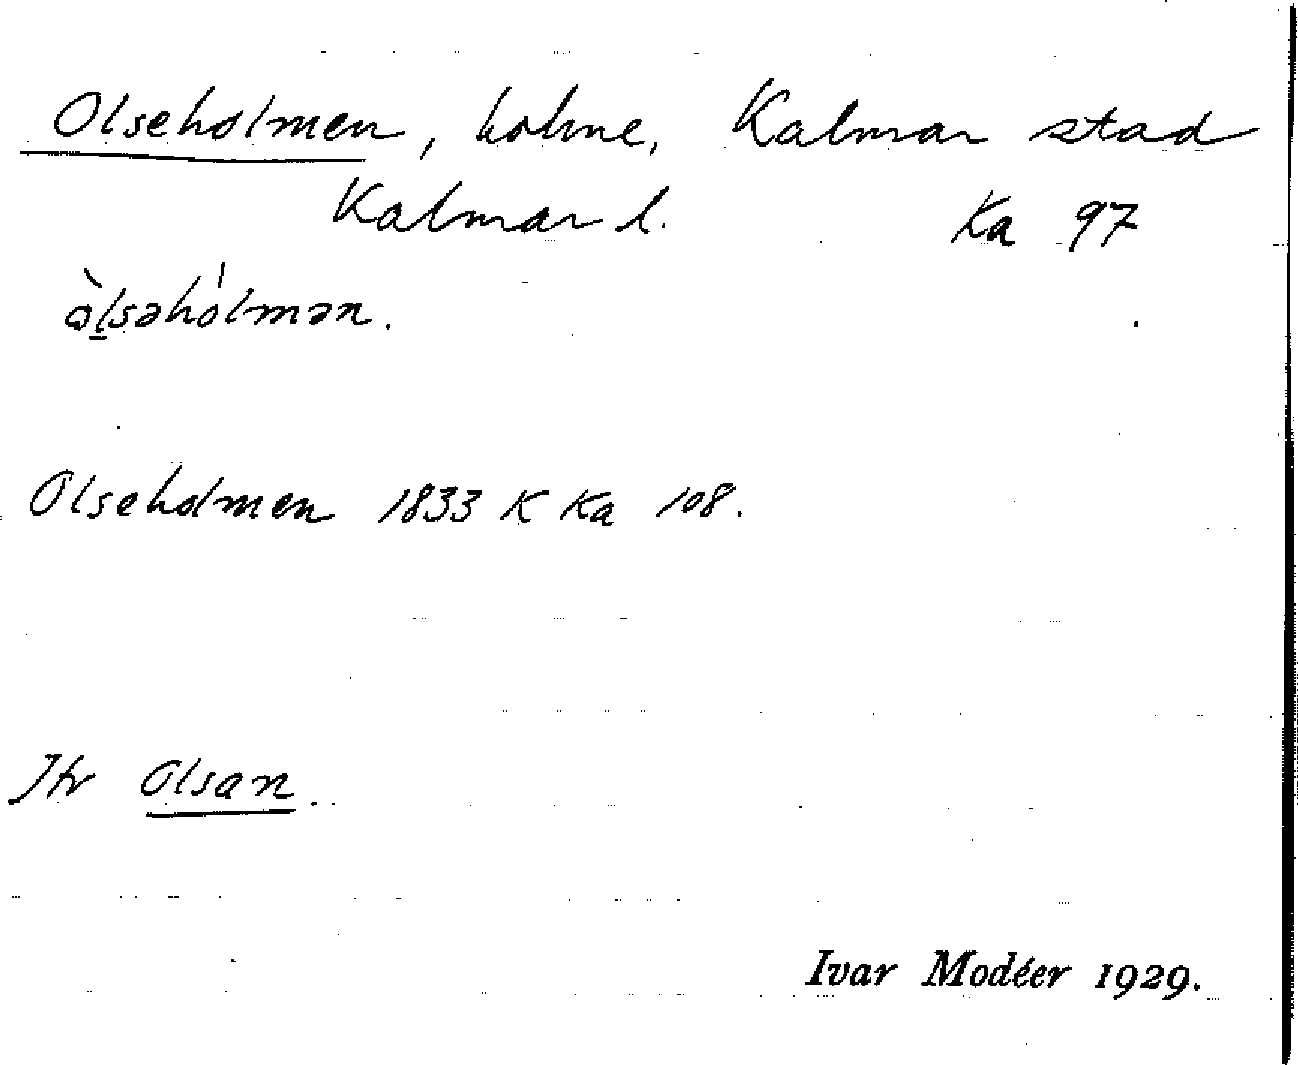 Olseholmen, holme, Kalmar stad
Kalmar l. Ka 97
òlsəhólmən.
Olseholmen 1833 K Ka 108.
Jfr Olsan.
Ivar Modéer 1929.